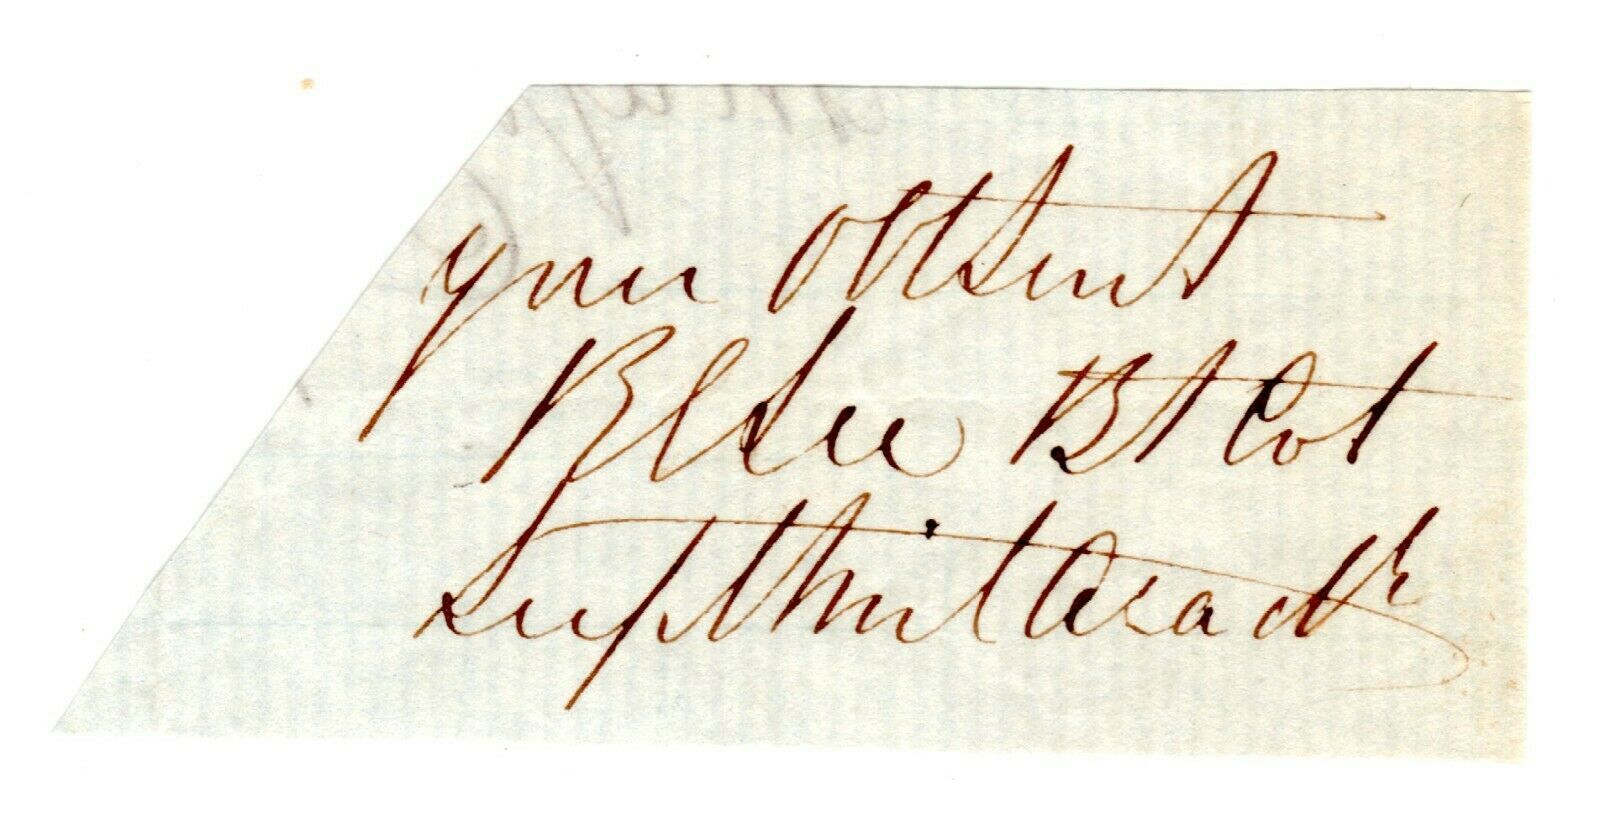 your Obt Servt
R E Lee Bt Col
Supt Mil Acady